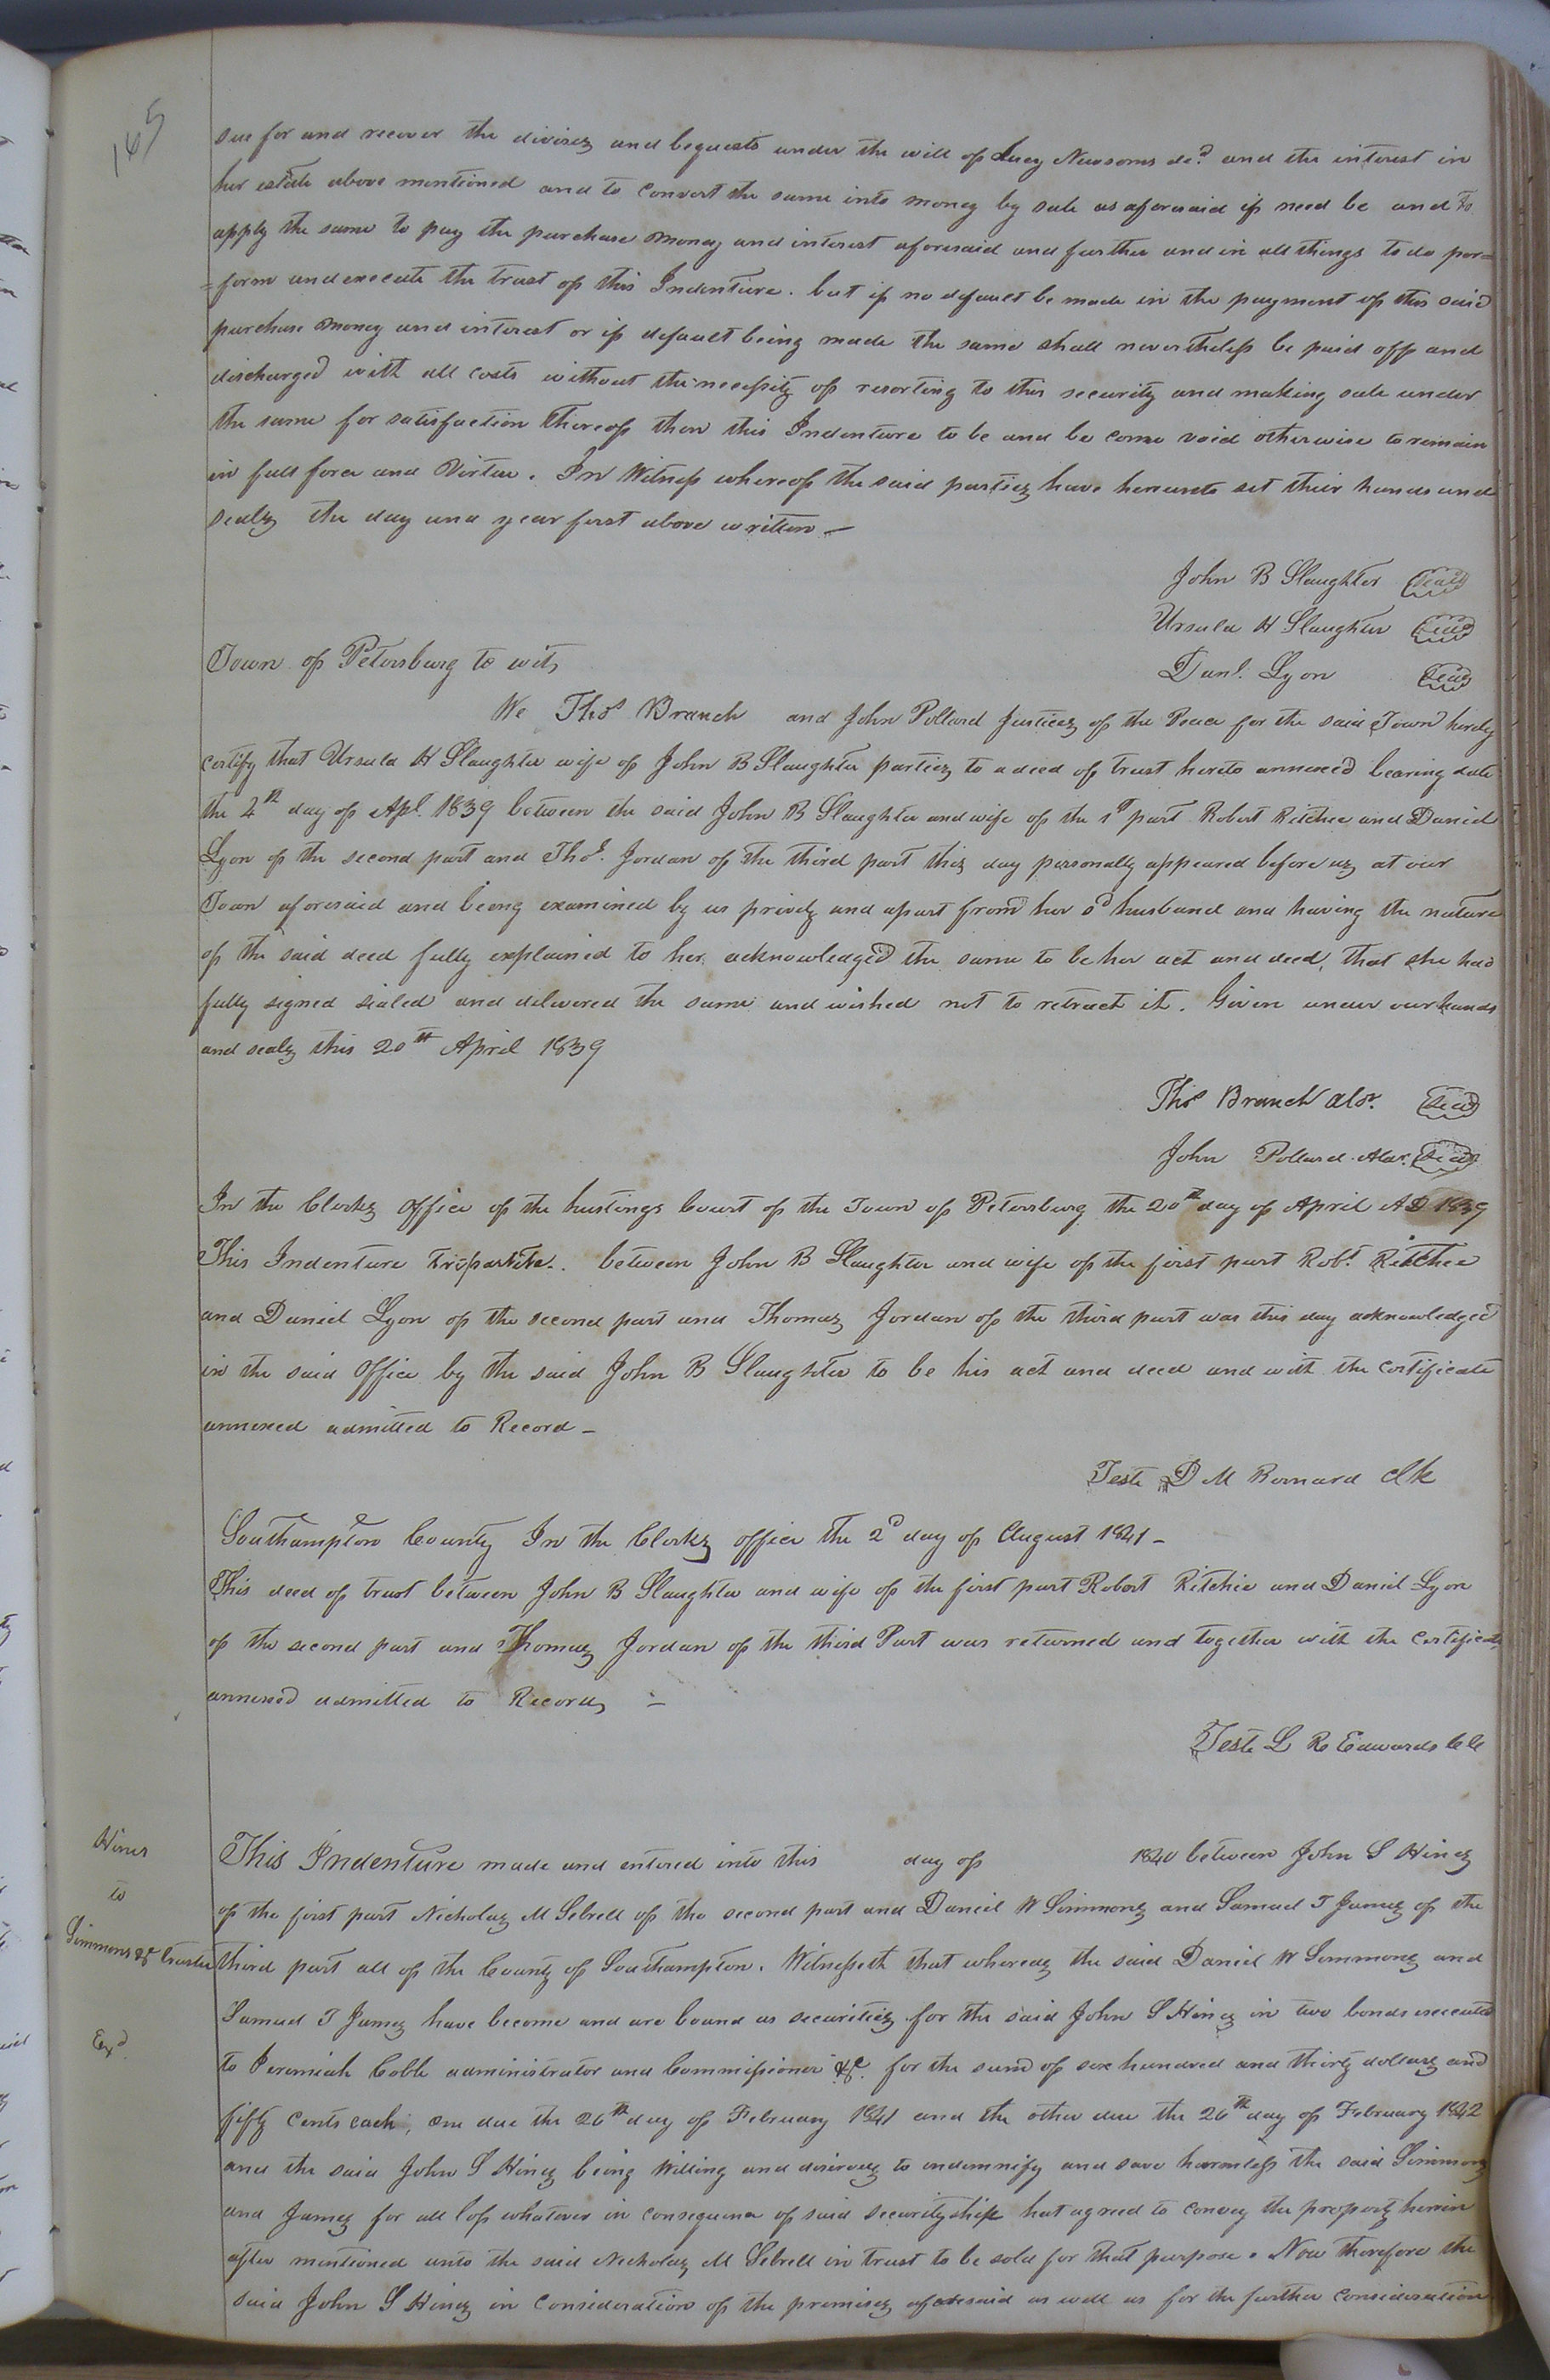 165
sue for and recover the devises and bequests under the will of Lucy Newsoms decd and the interest in
her estate above mentioned and to convert the same into money by sale as aforesaid if need be and to
apply the same to pay the purchase money and interest aforesaid and further and in all things to do per=
=form and execute the trust of this Indenture. but if no default be made in the payment of the said
purchase money and interest or if default being made the same shall nevertheless be paid off and
discharged with all costs without the necessity of resorting to this security and making sale under
the same for satisfaction thereof then this Indenture to be and be come void otherwise to remain
in full force and Virtue. In Witness whereof the said parties have hereunto set their hands and
seals the day and year first above written –
John B Slaughter Seal
Ursula H Slaughter Seal
Town of Petersburg to wit,
Danl. Lyon Seal
We Thos Branch and John Pollard Justices of the Peace for the said Town hereby
certify that Ursula H Slaughter wife of John B Slaughter parties to a deed of trust hereto annexed bearing date
the 4th day of Apl. 1839 between the said John B Slaughter and wife of the 1st part Robert Ritchie and Daniel
Lyon of the second part and Thos. Jordan of the third part this day personally appeared before us at our
Town aforesaid and being examined by us privily and apart from her sd husband and having the nature
of the said deed fully explained to her acknowledged the same to be her act and deed, that she had
fully signed sealed and delivered the same and wished not to retract it. Given under our hands
and seals this 20th April 1839
Thos Branch Aldr. Seal
John Pollard Aldr. Seal
In the Clerks Office of the hustings Court of the Town of Petersburg the 20th day of April AD 1839
This Indenture tripartite. between John B Slaughter and wife of the first part Robt. Ritchie
and Daniel Lyon of the second part and Thomas Jordan of the third part was this day acknowledged
in the said Office by the said John B Slaughter to be his act and deed and with the certificate
annexed admitted to Record –
Teste D M Bernard Clk
Southampton County In the Clerks office the 2d day of August 1841 –
This deed of trust between John B Slaughter and wife of the first part Robert Ritchie and Daniel Lyon
of the second part and Thomas Jordan of the third Part was returned and together with the Certificate
annexed admitted to Record –
Teste L R Edwards CC
Hines
to
Simmons &c trustee
Exd
This Indenture made and entered into this day of 1840 between John S Hines
of the first part Nicholas M Sebrell of the second part and Daniel W Simmons and Samuel T James of the
third part all of the County of Southampton. Witnesseth that whereas the said Daniel W Simmons and
Samuel T James have become and are bound as securities for the said John S Hines in two bonds executed
to Jeremiah Cobb administrator and Commissioner &c. for the sum of six hundred and thirty dollars and
fifty cents each, one due the 26th day of February 1841 and the other due the 26th day of February 1842
and the said John S Hines being Willing and desirous to indemnify and save harmless the said Simmons
and James for all loss whatever in consequence of said securityship hat agreed to convey the property herein
after mentioned unto the said Nicholas M Sebrell in trust to be sold for that purpose. Now therefore the
said John S Hines in Consideration of the premises aforesaid as well as for the further consideration